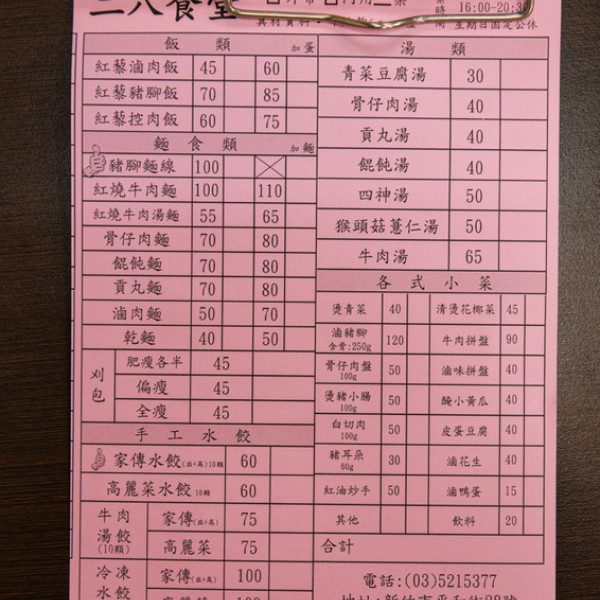 二八食堂
時 16:00-20:30
間 星期日固定公休
飯類 加蛋
紅藜滷肉飯 45 60
紅藜豬腳飯 70 85
紅藜控肉飯 60 75
麵食類 加麵
豬腳麵線 100
紅燒牛肉麵 100 110
紅燒牛肉湯麵 55 65
骨仔肉麵 70 80
餛飩麵 70 80
貢丸麵 70 80
滷肉麵 50 70
乾麵 40 50
刈包
肥瘦各半 45
偏瘦 45
全瘦 45
手工水餃
家傳水餃(韮+高)10顆 60
高麗菜水餃10顆 60
牛肉湯餃(10顆)
家傳(韮+高) 75
高麗菜 75
冷凍水餃
家傳(韮+高) 100
湯類
青菜豆腐湯 30
骨仔肉湯 40
貢丸湯 40
餛飩湯 40
四神湯 50
猴頭菇薏仁湯 50
牛肉湯 65
各式小菜
燙青菜 40 清燙花椰菜 45
滷豬腳 含骨:250g 120 牛肉拼盤 90
骨仔肉盤 100g 40 滷味拼盤 40
燙豬小腸 100g 50 醃小黃瓜 40
白切肉 100g 50 皮蛋豆腐 40
豬耳朵 60g 30 滷花生 40
紅油炒手 50 滷鴨蛋 15
其他 飲料 20
合計
電話:(03)5215377